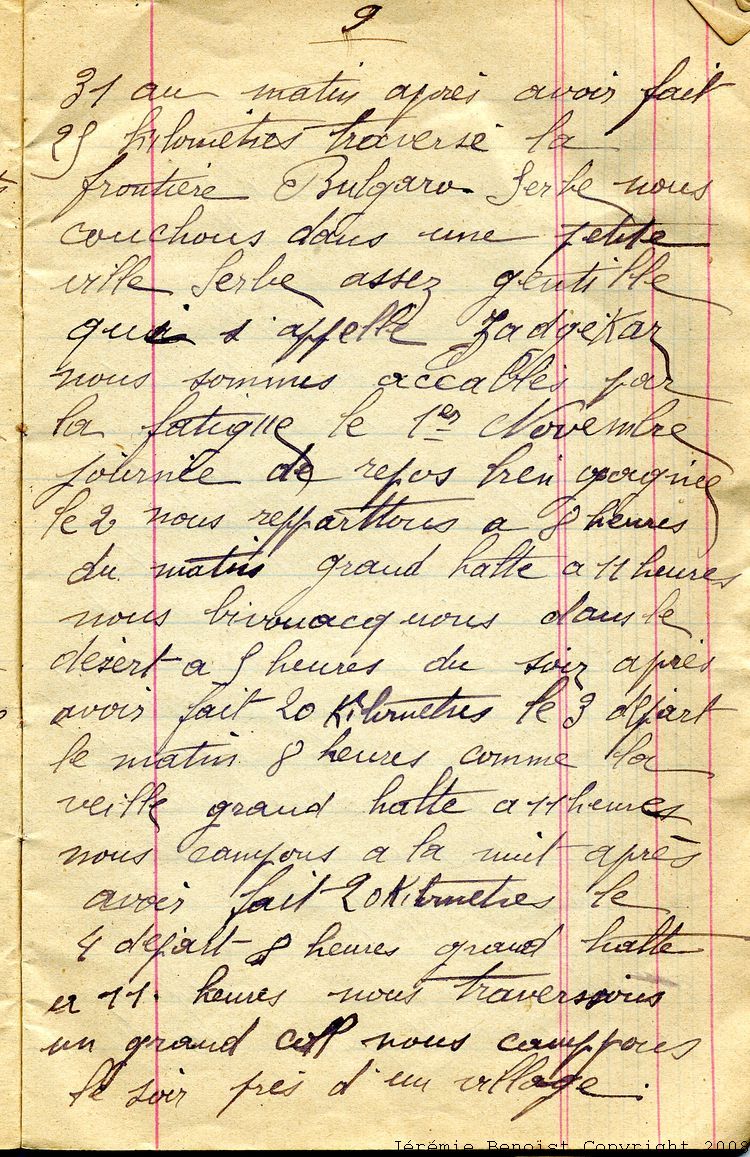 9
31 au matin après avoir fait
25 kilomètres traversé la
frontière Bulgaro-Serbe nous
couchons dans une petite
ville Serbe assez gentille
qui s'appelle Zadgékar
nous sommes accablés par
la fatigue le 1er Novembre
journée de repos bien gagnée
le 2 nous repparttons a 8 heures
du matin grand halte a 11 heures
nous bivouacquons dans le
désert a 5 heures du soir après
avoir fait 20 Kilomètres le 3 départ
le matin 8 heures comme la
veille grand halte a 11 heures
nous campons a la nuit après
avoir fait 20 Kilomètres le
4 départ 8 heures grand halte
a 11 heures nous traverssons
un grand coll nous camppons
le soir près d'un village.
Jérémie Benoist Copyright 2008